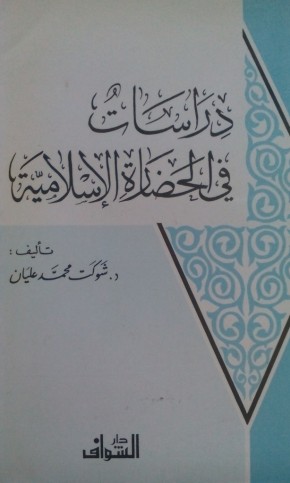 دِرَاسَاتٌ
في الحَضَارَة الإِسْلاَميَّة
تأليف:
د. شوكت محمد عليان
دار
الشواف